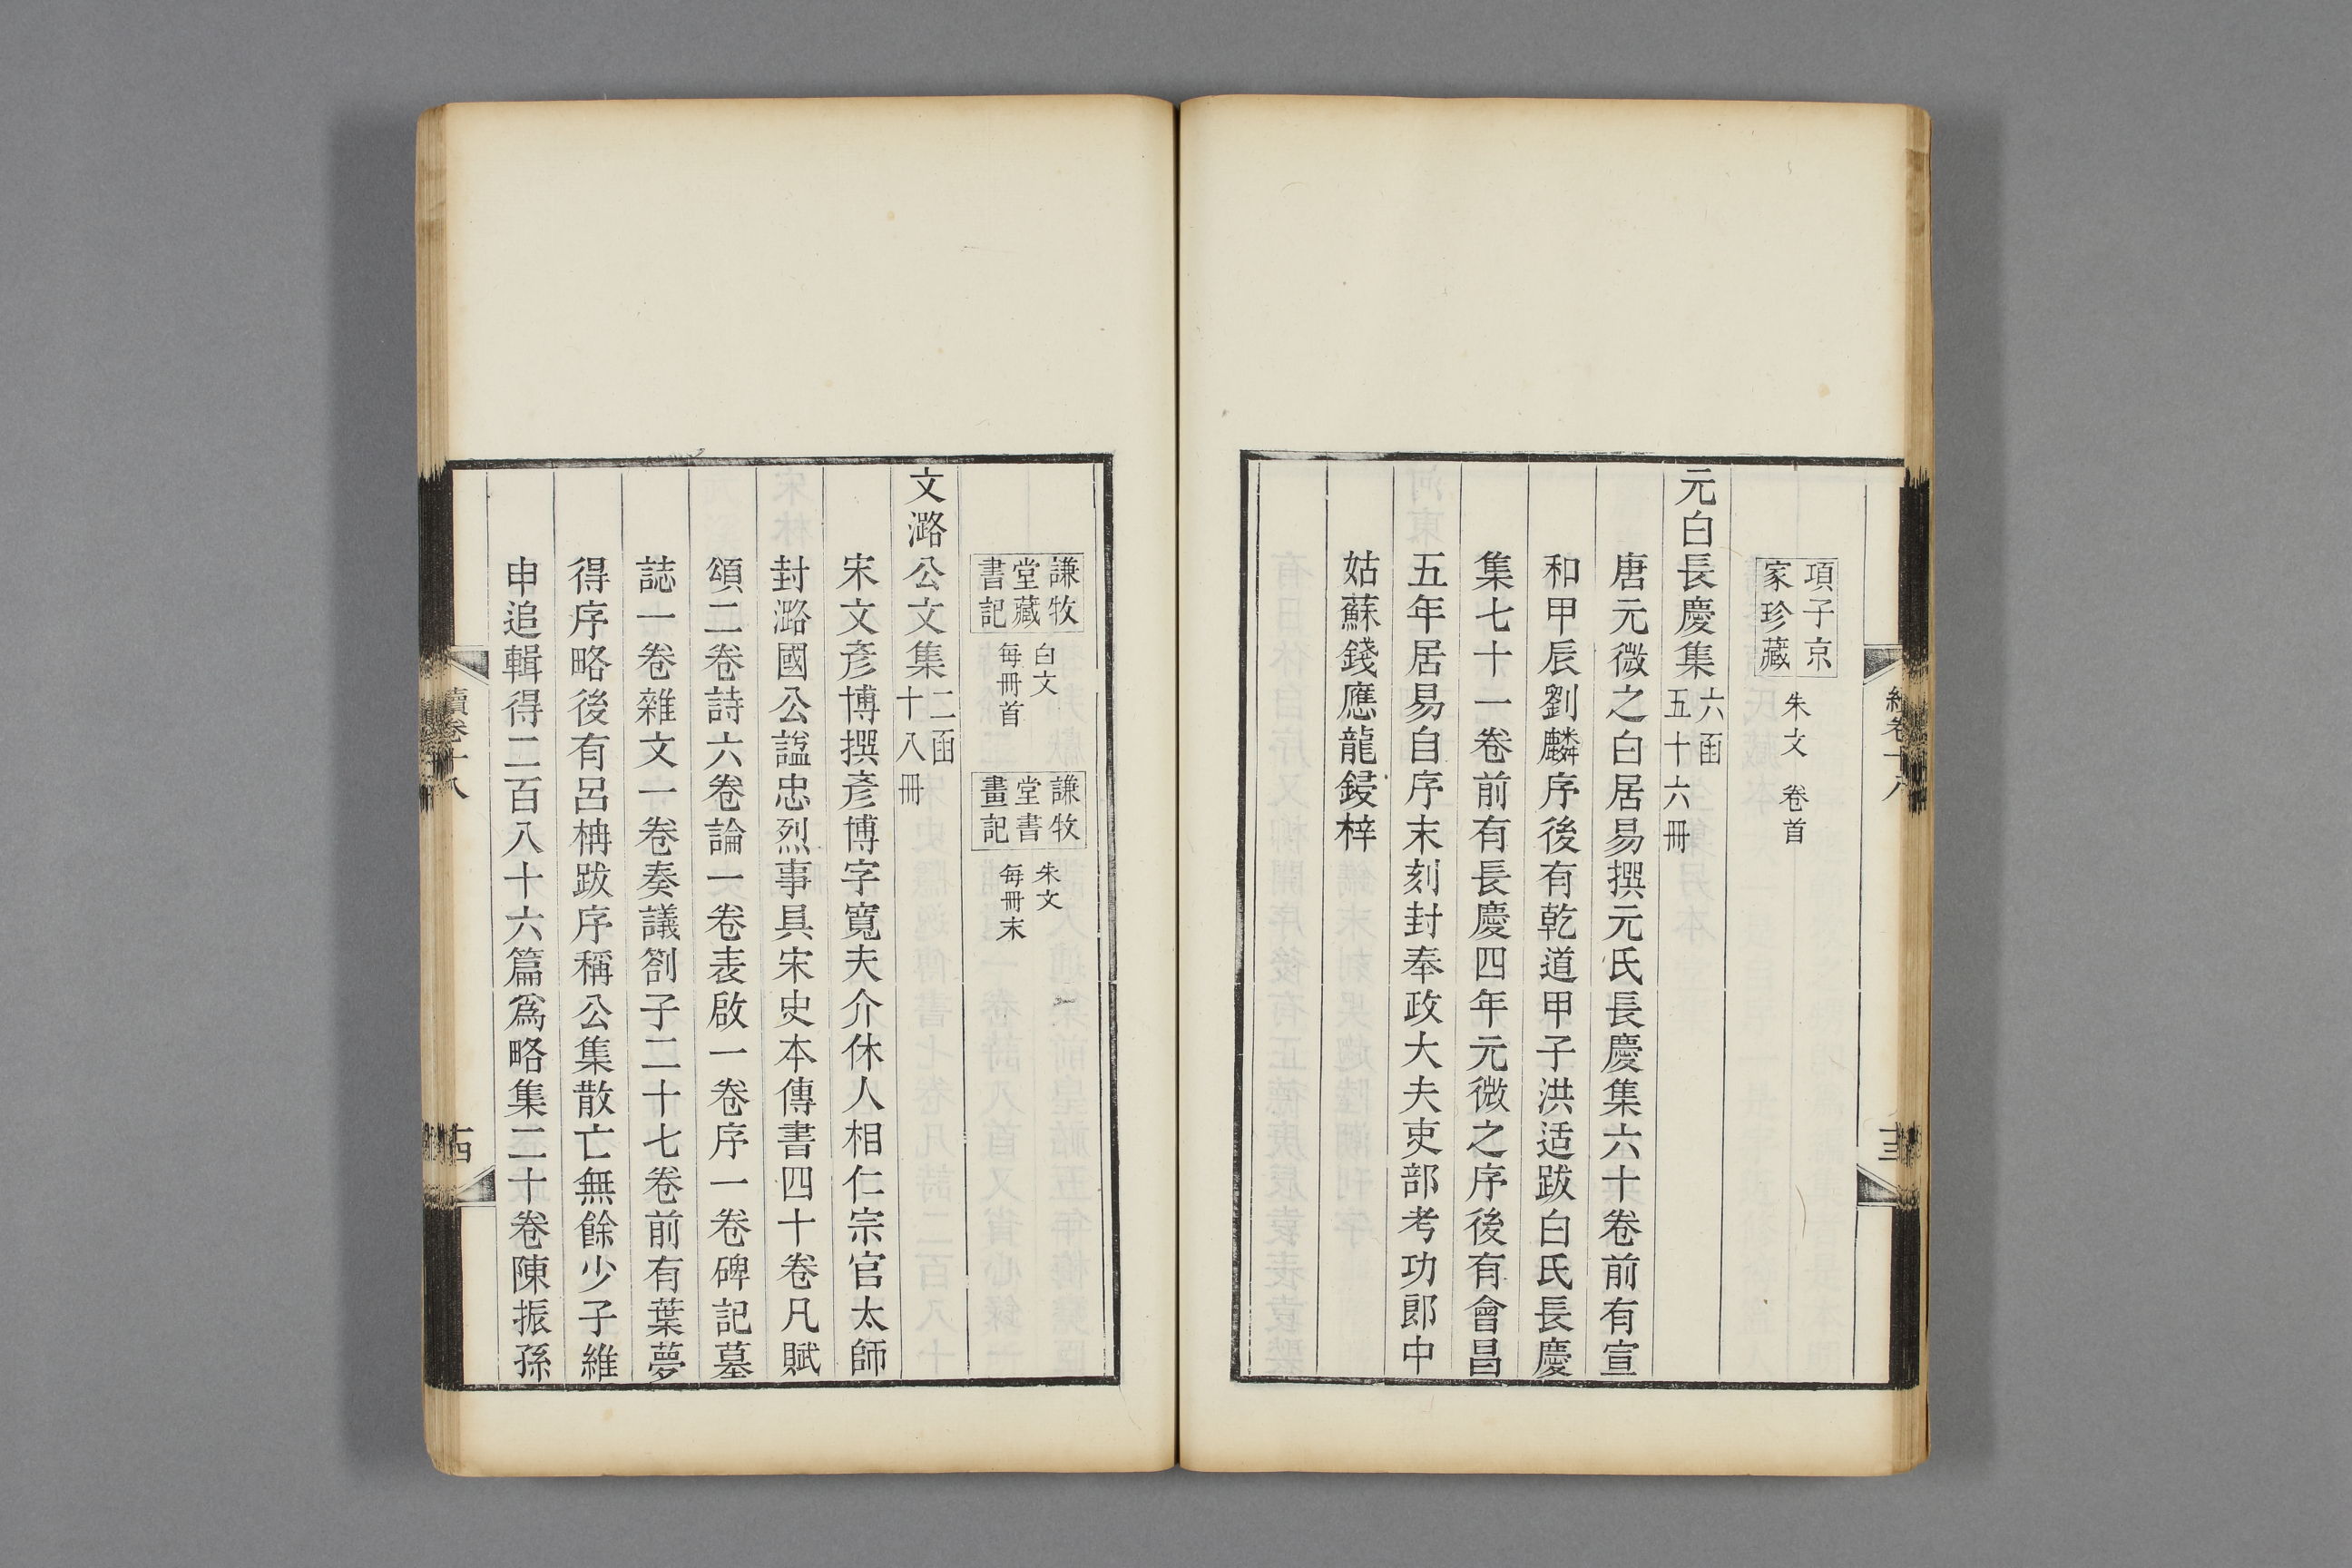 項子京
家珍藏
朱文　卷首
元白長慶集
六函
五十六冊
唐元微之白居易撰元氏長慶集六十卷前有宣
和甲辰劉麟序後有乾道甲子洪适跋白氏長慶
集七十一卷前有長慶四年元微之序後有會昌
五年居易自序末刻封奉政大夫吏部考功郎中
姑蘇錢應龍鋟梓
謙牧
堂藏
書記
白文
每冊首
謙牧
堂書
畫記
朱文
每冊末
文潞公文集
二函
十八冊
宋文彥博撰彥博字寬夫介休人相仁宗官太師
封潞國公諡忠烈事具宋史本傳書四十卷凡賦
頌二卷詩六卷論一卷表啟一卷序一卷碑記墓
誌一卷雜文一卷奏議劄子二十七卷前有葉夢
得序略後有呂柟跋序稱公集散亡無餘少子維
申追輯得二百八十六篇爲略集二十卷陳振孫
續卷十八